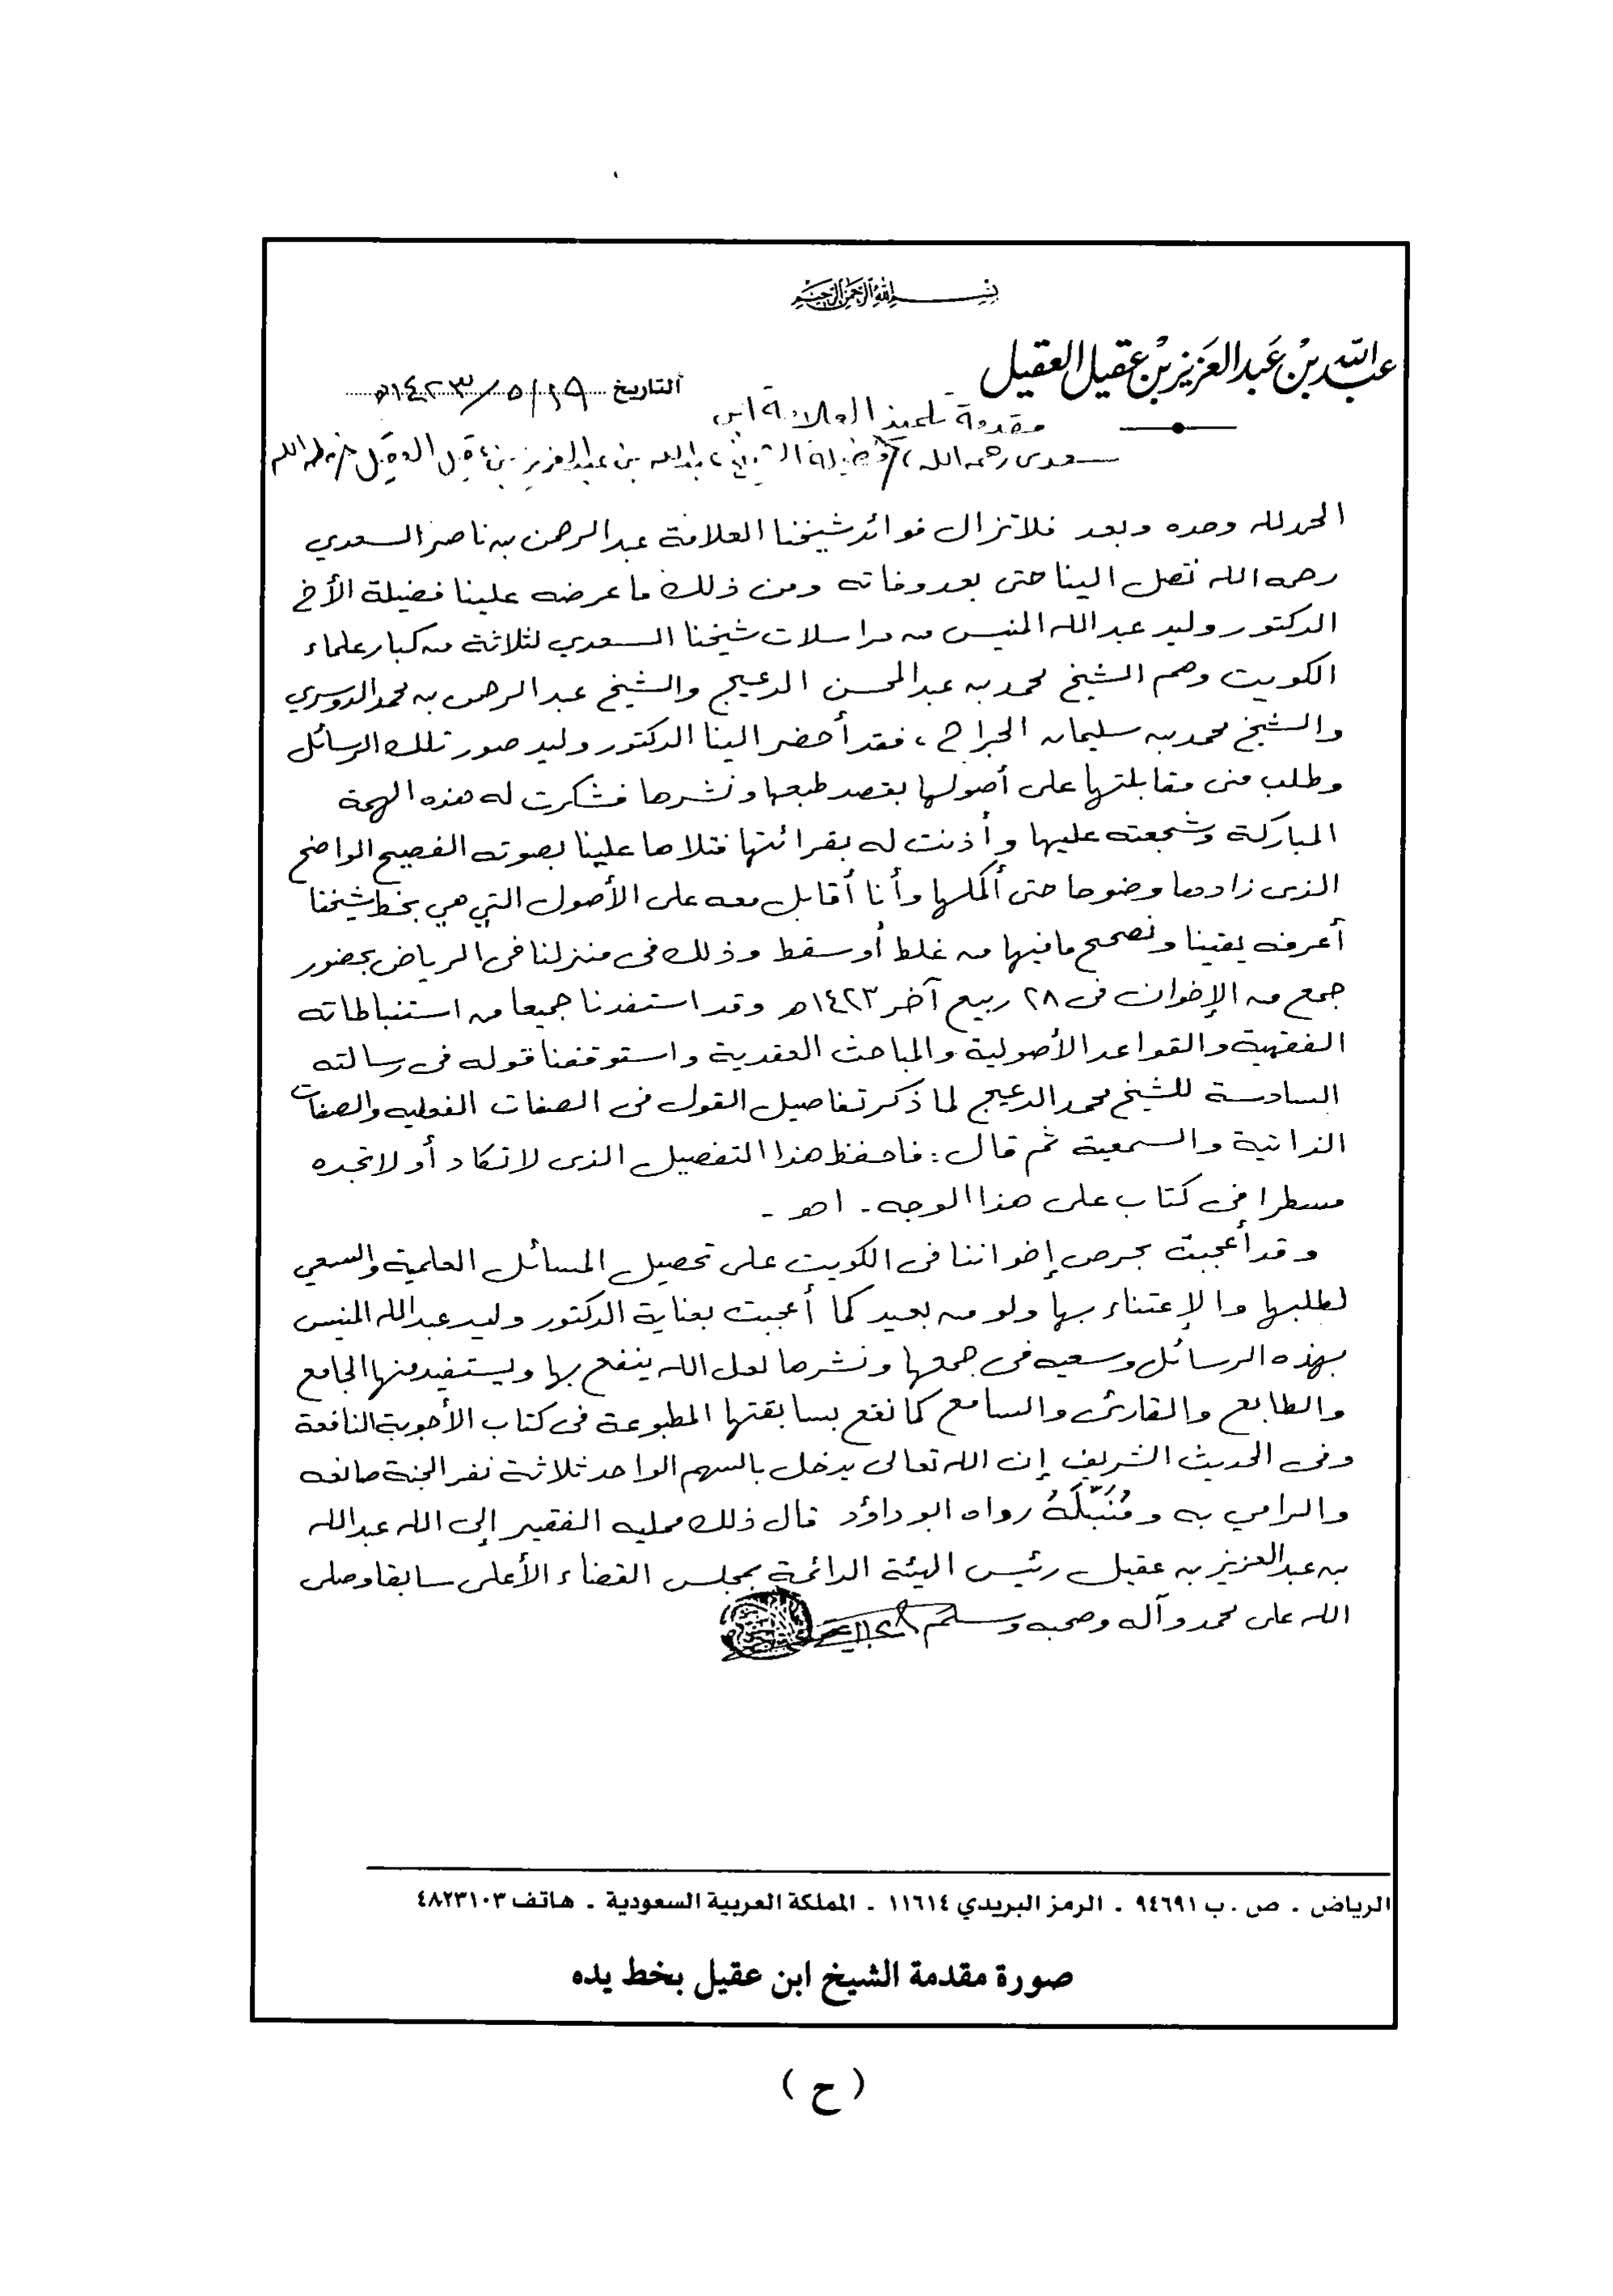 بسم الله الرحمن الرحيم
عبد الله بن عبد العزيز بن عقيل العقيل
التاريخ ١٩/٥/١٤٢٣هـ
مقدمة تلميذ العلامة ابن
سعدي رحمه الله، فضيلة الشيخ عبدالله بن عبدالعزيز بن عقيل العقيل حفظه الله
الحمد لله وحده وبعد فلا تزال فوائد شيخنا العلامة عبد الرحمن بن ناصر السعدي
رحمه الله تصل الينا حتى بعد وفاته ومن ذلك ما عرضه علينا فضيلة الأخ
الدكتور وليد عبد الله المنيس من مراسلات شيخنا السعدي لثلاثة من كبار علماء
الكويت وهم الشيخ محمد بن عبد المحسن الدعيج والشيخ عبد الرحمن بن محمد الدوسري
والشيخ محمد بن سليمان الجراح ، فقد أحضر الينا الدكتور وليد صور تلك الرسائل
وطلب منى مقابلتها على أصولها بقصد طبعها ونشرها فشكرت له هذه الهمة
المباركة وشجعته عليها وأذنت له بقرائتها فتلاها علينا بصوته الفصيح الواضح
الذى زادها وضوحا حتى أكملها وأنا أقابل معه على الأصول التي هي بخط شيخنا
أعرفه يقينا ونصحح ما فيها من غلط أو سقط وذلك فى منزلنا فى الرياض بحضور
جمع من الإخوان فى ٢٨ ربيع آخر ١٤٢٣هـ وقد استفدنا جميعا من استنباطاته
الفقهية والقواعد الأصولية والمباحث العقدية واستوقفنا قوله فى رسالته
السادسة للشيخ محمد الدعيج لما ذكر تفاصيل القول فى الصفات الفعليه والصفات
الذاتية والسمعية ثم قال : فاحفظ هذا التفصيل الذى لا تكاد أو لا تجده
مسطرا فى كتاب على هذا الوجه . اهـ .
وقد أعجبت بحرص إخواننا فى الكويت على تحصيل المسائل العلمية والسعي
لطلبها والإعتناء بها ولو من بعيد كما أعجبت بعناية الدكتور وليد عبد الله المنيس
بهذه الرسائل وسعيه فى جمعها ونشرها لعل الله ينفع بها ويستفيد منها الجامع
والطابع والقارئ والسامع كما نفع بسابقتها المطبوعة فى كتاب الأجوبة النافعة
وفى الحديث الشريف إن الله تعالى يدخل بالسهم الواحد ثلاثة نفر الجنة صانعه
والرامي به ومُنَبِّلَهُ رواه ابو داؤد قال ذلك ممليه الفقير إلى الله عبد الله
بن عبد العزيز بن عقيل رئيس الهيئة الدائمة بمجلس القضاء الأعلى سابقا وصلى
الله على محمد وآله وصحبه وسلم
الرياض . ص . ب ٩٤٦٩١ . الرمز البريدي ١١٦١٤ . المملكة العربية السعودية . هاتف ٤٨٢٣١٠٣
صورة مقدمة الشيخ ابن عقيل بخط يده
( ح )